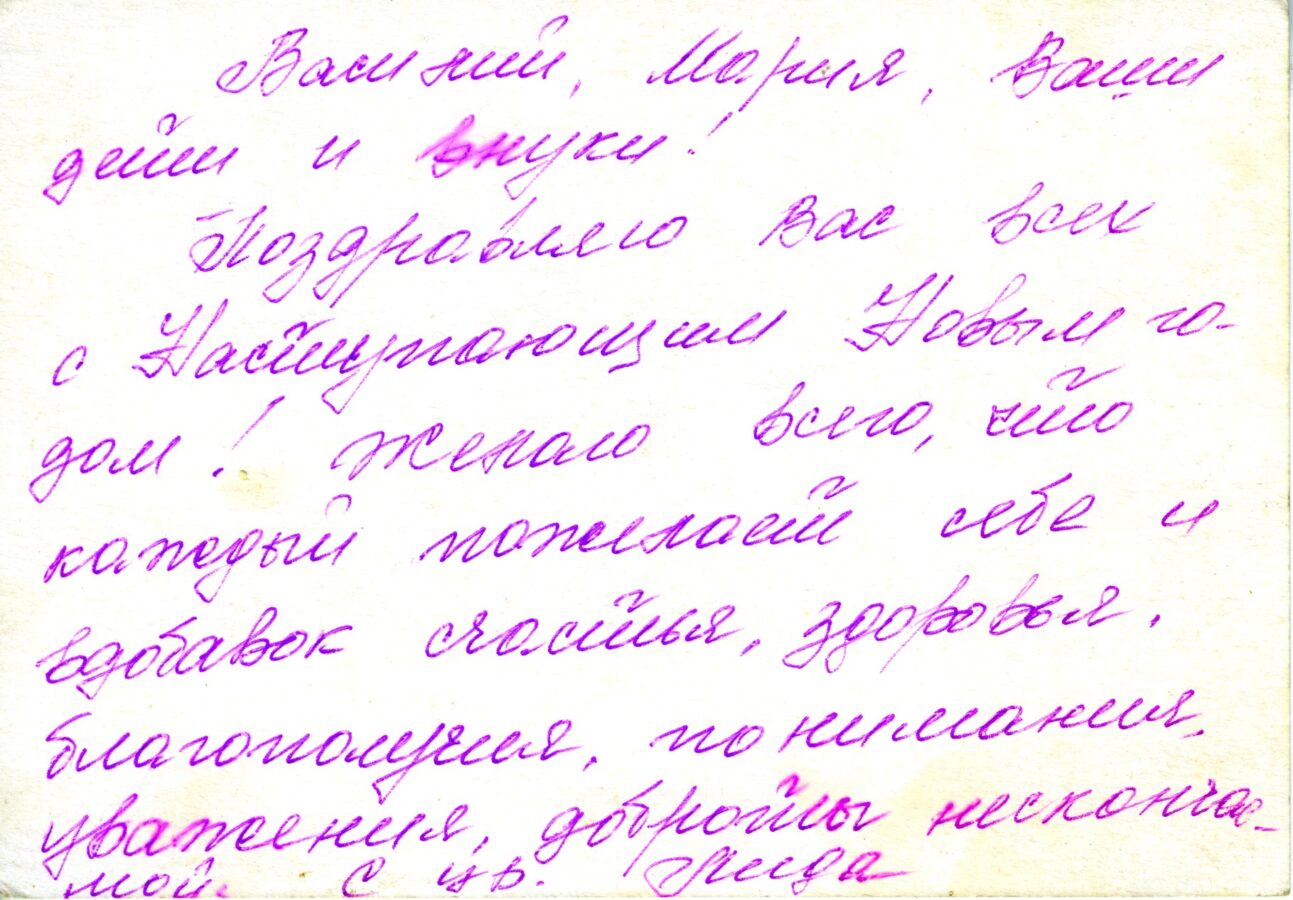 Василий, Мария, Ваши
дети и внуки!
Поздравляю Вас всех
с Наступающим Новым го-
дом! Желаю всего, что
каждый пожелает себе и
вдобавок счастья, здоровья,
благополучия, понимания,
уважения, доброты нескончае-
мой. С ув. Лида